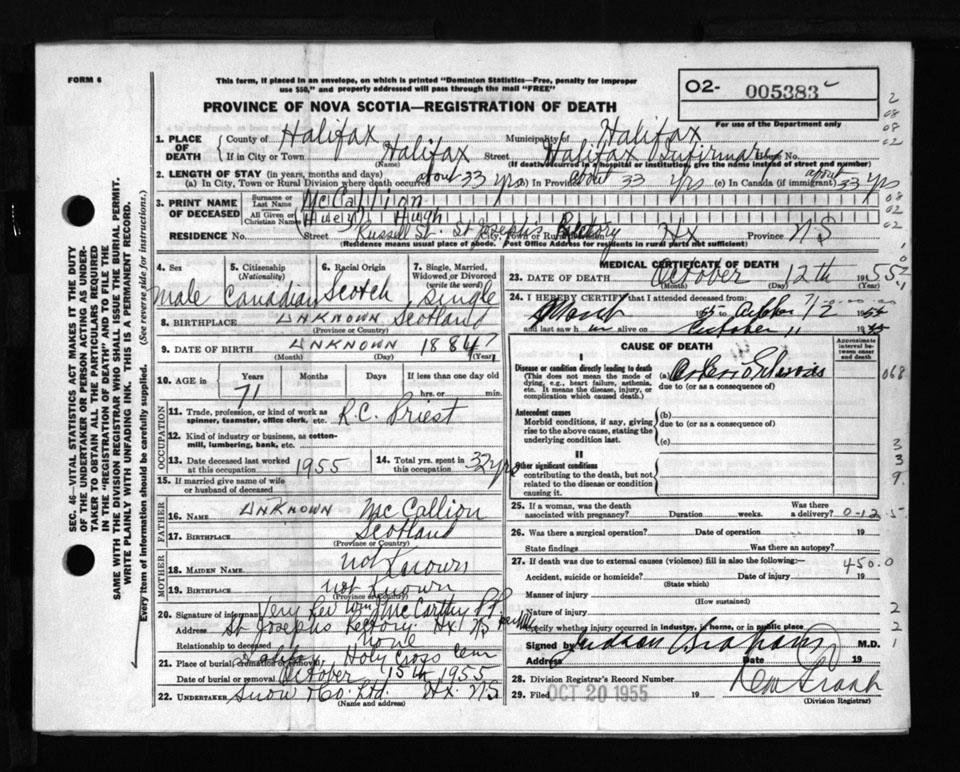 FORM 6
This form, if placed in an envelope, on which is printed "Dominion Statistics—Free, penalty for improper
use $50," and properly addressed will pass through the mail "FREE"
PROVINCE OF NOVA SCOTIA—REGISTRATION OF DEATH
O2- 005383
For use of the Department only
SEC. 46—VITAL STATISTICS ACT MAKES IT THE DUTY
OF THE UNDERTAKER OR PERSON ACTING AS UNDER-
TAKER TO OBTAIN ALL THE PARTICULARS REQUIRED
IN THE "REGISTRATION OF DEATH" AND TO FILE THE
SAME WITH THE DIVISION REGISTRAR WHO SHALL ISSUE THE BURIAL PERMIT.
WRITE PLAINLY WITH UNFADING INK. THIS IS A PERMANENT RECORD.
Every item of information should be carefully supplied. (See reverse side for instructions.)
1. PLACE OF DEATH
County of Halifax Municipality of Halifax
If in City or Town Halifax Street Halifax Infirmary House No.
(Name) (If death occurred in a hospital or institution, give the name instead of street and number)
2. LENGTH OF STAY (in years, months and days)
(a) In City, Town or Rural Division where death occurred about 33 yrs (b) In Province about 33 yrs (c) In Canada (if immigrant) about 33 yrs
3. PRINT NAME OF DECEASED
Surname or Last Name McCallion
All Given or Christian Names Hugh
RESIDENCE No. Street Russell St. St Joseph's Rectory City, Town or Rural Hx Province NS
(Residence means usual place of abode. Post Office Address for residents in rural parts not sufficient)
4. Sex
male
5. Citizenship (Nationality)
Canadian
6. Racial Origin
Scotch
7. Single, Married, Widowed or Divorced (write the word)
Single
8. BIRTHPLACE UNKNOWN Scotland
(Province or Country)
9. DATE OF BIRTH UNKNOWN 1884
(Month) (Day) (Year)
10. AGE in Years Months Days If less than one day old
71 hrs. or min.
OCCUPATION
11. Trade, profession, or kind of work as spinner, teamster, office clerk, etc. R.C. Priest
12. Kind of industry or business, as cotton-mill, lumbering, bank, etc.
13. Date deceased last worked at this occupation 1955
14. Total yrs. spent in this occupation 32 yrs
15. If married give name of wife or husband of deceased
FATHER
16. NAME UNKNOWN McCallion
17. BIRTHPLACE Scotland
(Province or Country)
MOTHER
18. MAIDEN NAME Not Known
19. BIRTHPLACE Not Known
(Province or Country)
20. Signature of informant Very Rev Wm J McCarthy P.P.
Address St Josephs Rectory Hx NS
Relationship to deceased none
21. Place of burial, cremation or removal Halifax, Holy Cross Cem
Date of burial or removal October 15th 1955
22. UNDERTAKER Snow & Co. Ltd. Hx. NS
(Name and address)
MEDICAL CERTIFICATE OF DEATH
23. DATE OF DEATH October 12th 1955
(Month) (Day) (Year)
24. I HEREBY CERTIFY that I attended deceased from:
October 12
and last saw h im alive on October 11
CAUSE OF DEATH
Approximate interval between onset and death
I
Disease or condition directly leading to death
(This does not mean the mode of dying, e.g., heart failure, asthenia, etc. It means the disease, injury, or complication which caused death.)
(a)
due to (or as a consequence of)
Antecedent causes
Morbid conditions, if any, giving rise to the above cause, stating the underlying condition last.
(b)
due to (or as a consequence of)
(c)
II
Other significant conditions
contributing to the death, but not related to the disease or condition causing it.
25. If a woman, was the death associated with pregnancy? Duration weeks. Was there a delivery?
26. Was there a surgical operation? Date of operation 19
State findings Was there an autopsy?
27. If death was due to external causes (violence) fill in also the following:—
Accident, suicide or homicide? Date of injury 19
(State which)
Manner of injury
(How sustained)
Nature of injury
Specify whether injury occurred in industry, in home, or in public place
Signed by Judson Graham M.D.
Address Date 19
28. Division Registrar's Record Number
29. Filed OCT 20 1955 19
(Division Registrar)
068
450.0